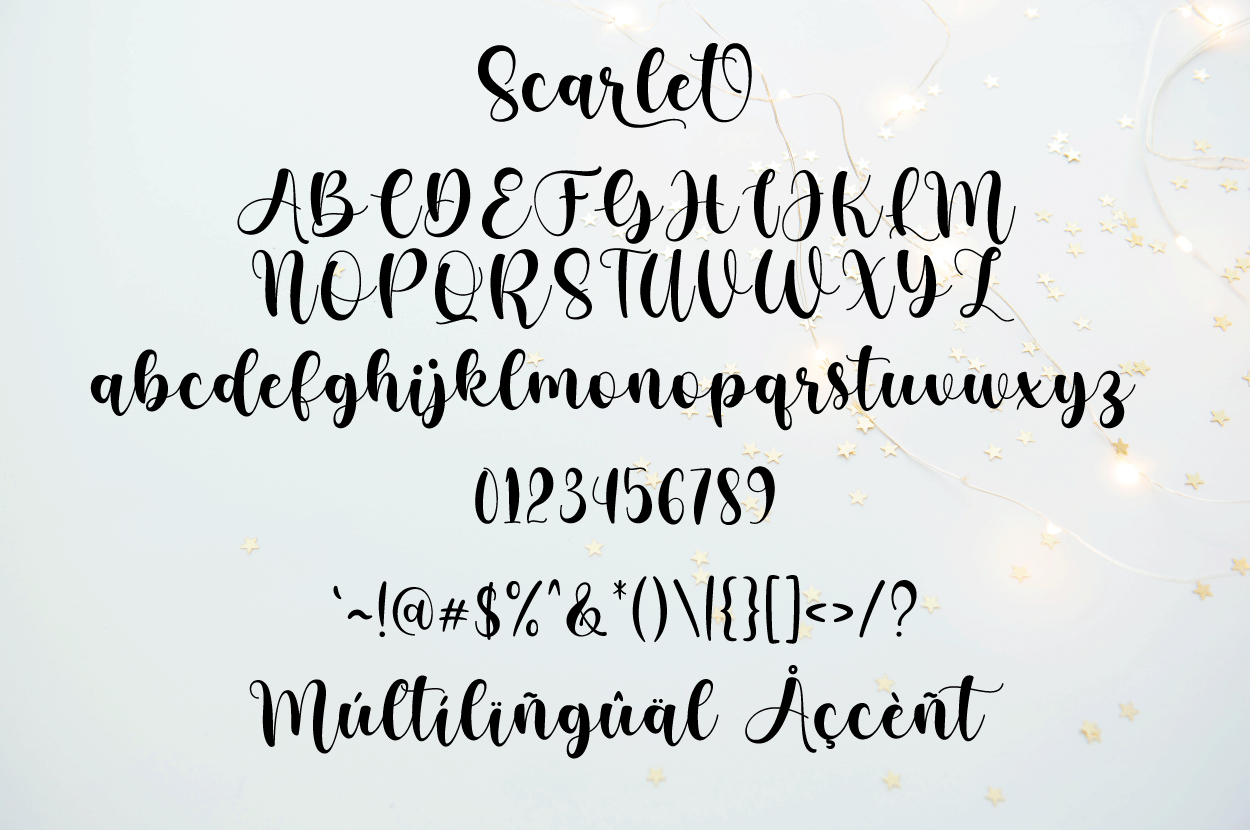 Scarlet
ABCDEFGHIJKLM
NOPQRSTUVWXYZ
abcdefghijklmonopqrstuvwxyz
0123456789
`~!@#$%^&*()\|{}[]<>/?
Múltílïñgûäl Åçcèñt